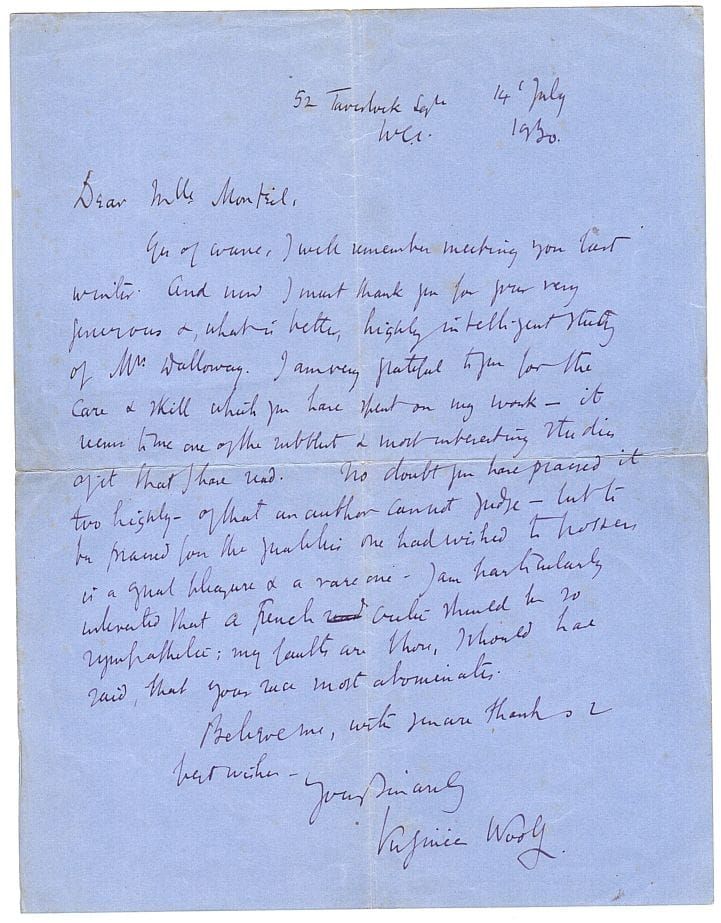 52 Tavistock Sqre 14t July
WC1. 1930.
Dear Mlle Monteil,
Yes of course, I well remember meeting you last
winter. And now I must thank you for your very
generous &, what is better, highly intelligent study
of Mrs Dalloway. I am very grateful to you for the
care & skill which you have spent on my work — it
seems to me one of the subtlest & most interesting studies
of it that I have read. No doubt you have praised it
too highly — of that an author cannot judge — but to
be praised for the qualities one had wished to possess
is a great pleasure & a rare one — I am particularly
interested that a French critic should be so
sympathetic; my faults are those, I should have
said, that your race most abominates.
Believe me, with sincere thanks &
best wishes —
Yours Sincerely
Virginia Woolf